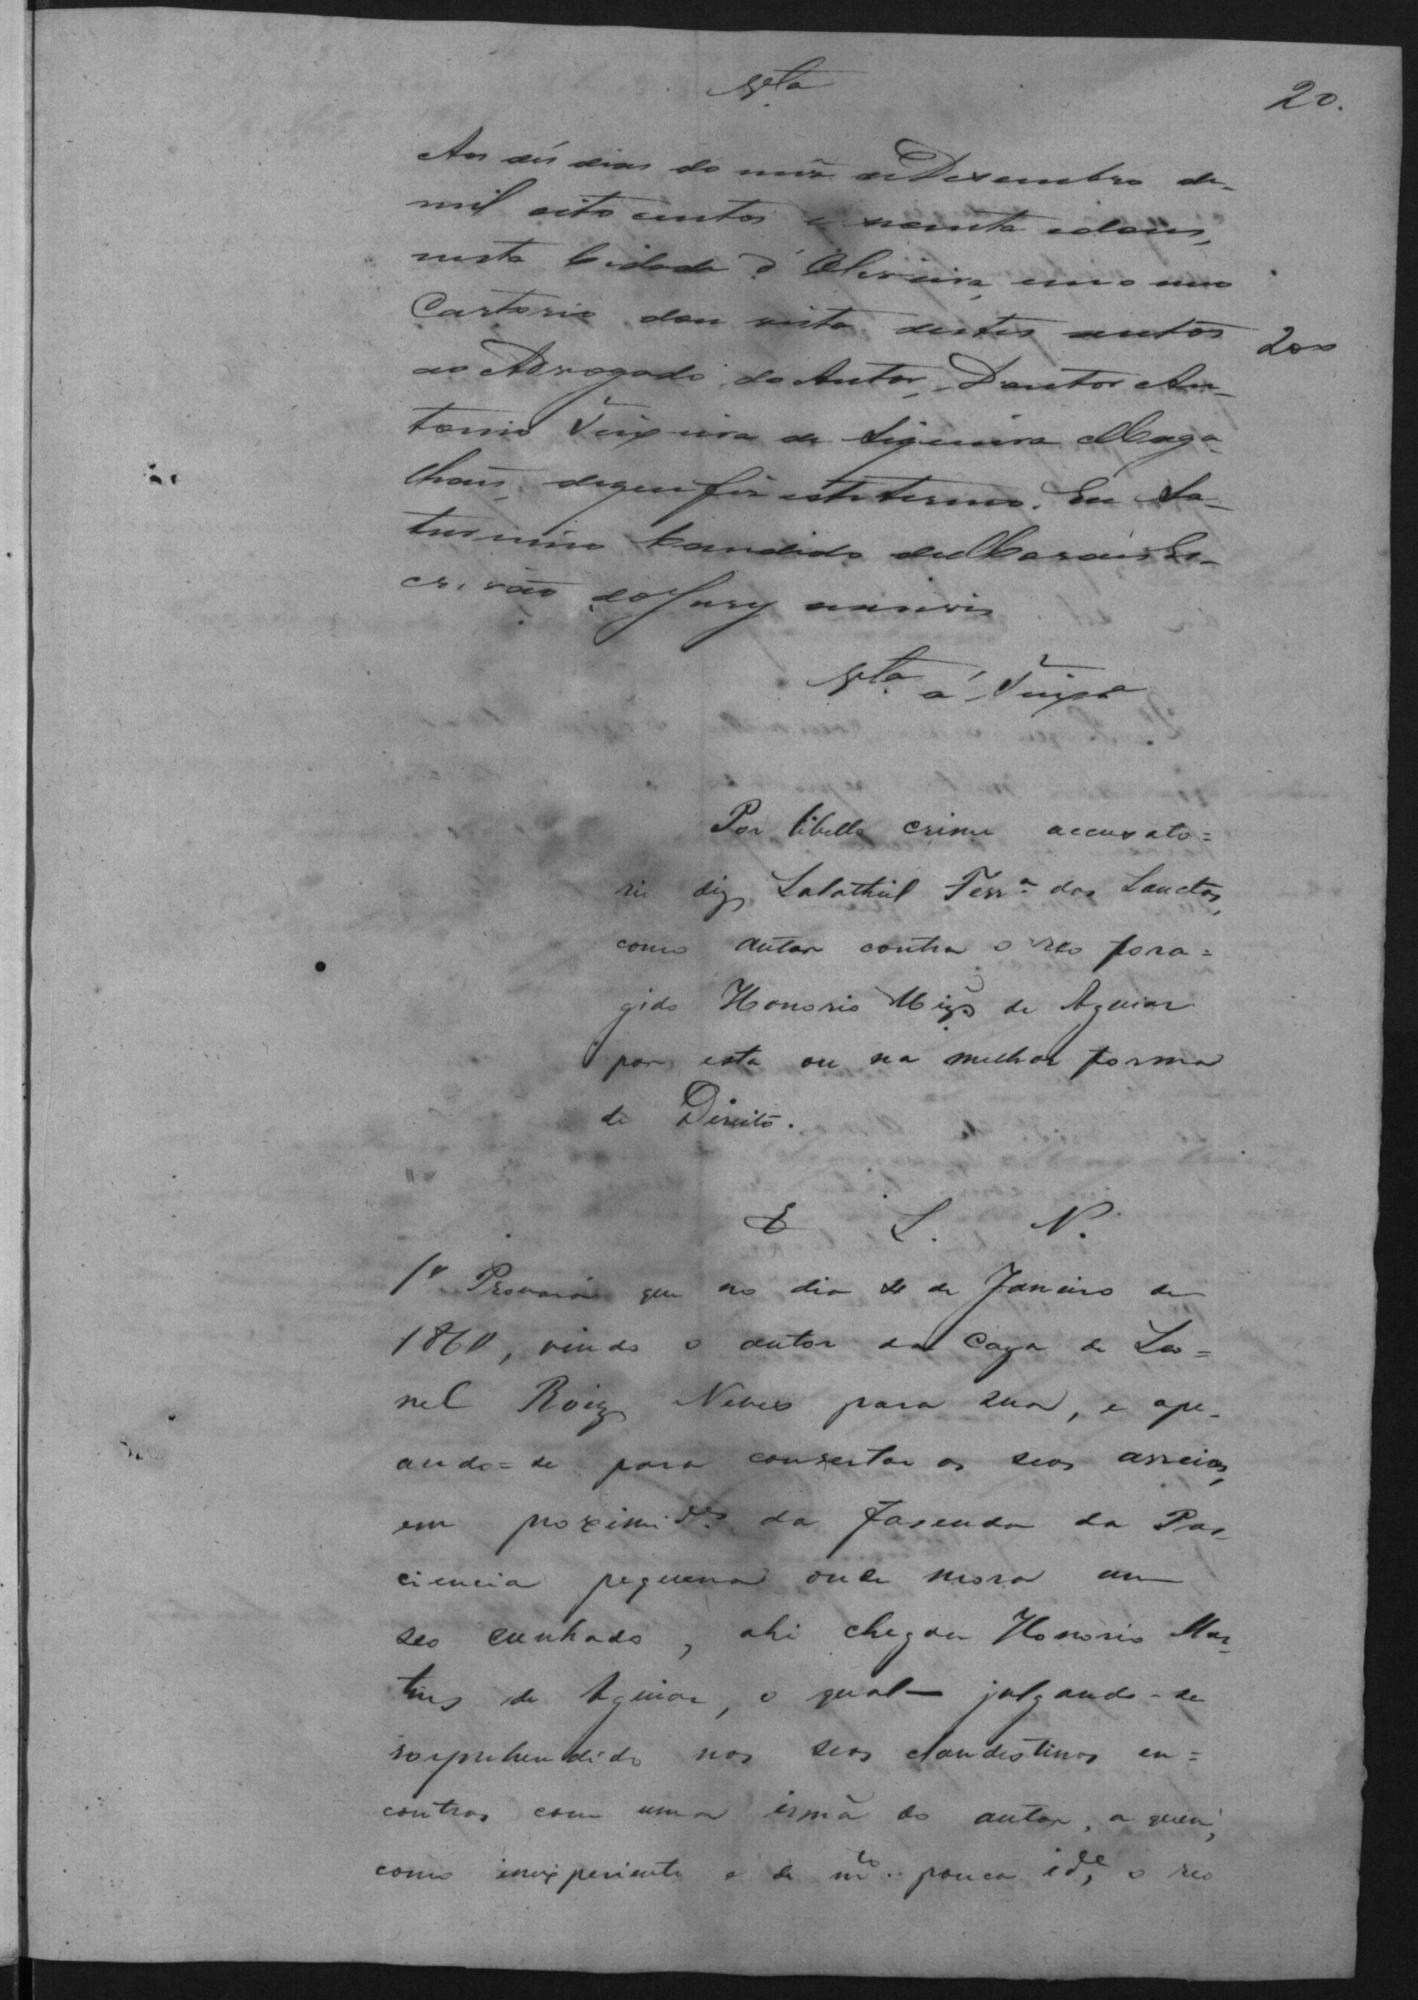 V.ta
20.
Aos dés dias do mez de Dezembro de
mil oito centos e secenta e dous,
nesta Cidade d'Oliveira, em o meo
Cartorio dou vista destes autos
200
ao Advogado do Autor, Doutor An-
tonio Teixeira de Siqueira Maga-
lhaes, do que fiz este termo. Eu Sa-
turnino Candido de Moraes Es-
crivão do Jury escrevi
V.ta a Teixr.a
Por libello crime accusato=
rio diz Salathiel Ferr.a dos Sanctos,
como autor contra o reo fora=
gido Honorio Miz de Aguiar
por esta ou na melhor forma
de Direito.
E S. N.
1º Provará que no dia 4 de Janeiro de
1860, vindo o autor da caza de Leo=
nel Roiz Neves para sua, e ape-
ando-se para consertar os seos arreios,
em proximid.es da fazenda da Pa-
ciencia pequena onde mora um
seo cunhado, ahi chegou Honorio Mar-
tins de Aguiar, o qual julgando-se
sorprehendido nos seos clandestinos en=
contros com uma irmã do autor, a quem,
como inexperiente e de m.to pouca id.e, o reo